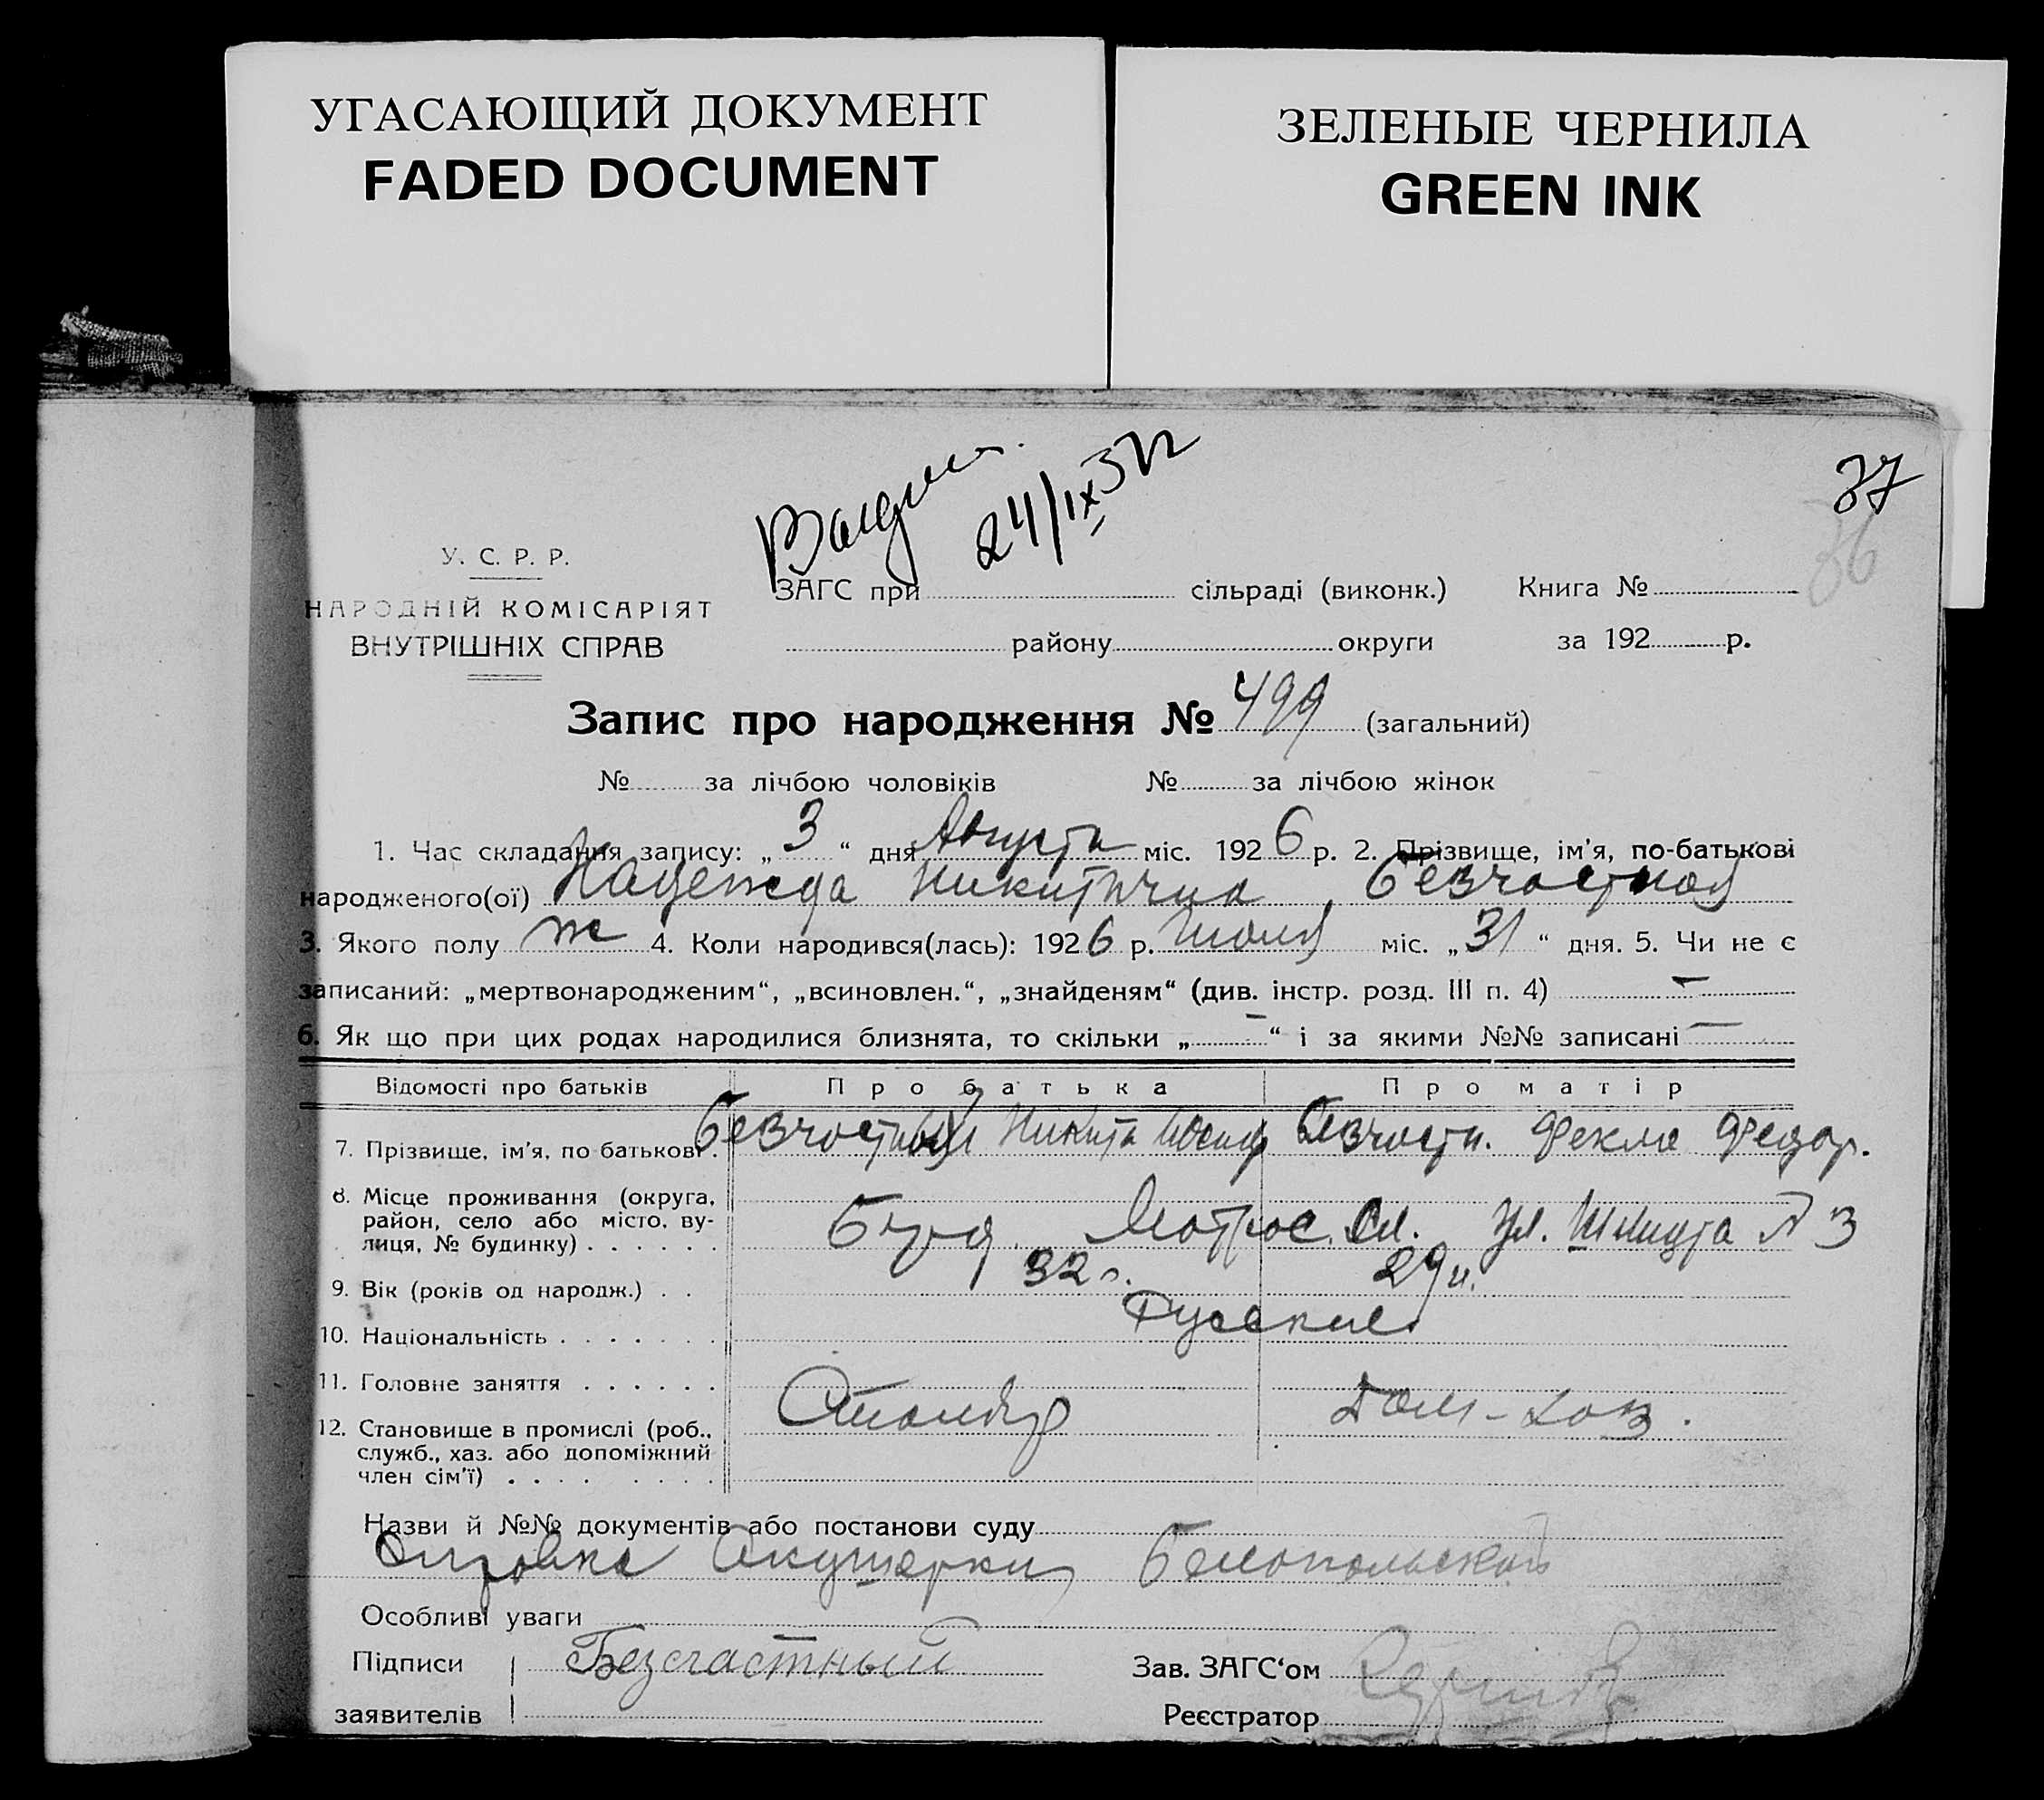 УГАСАЮЩИЙ ДОКУМЕНТ
FADED DOCUMENT
ЗЕЛЕНЫЕ ЧЕРНИЛА
GREEN INK
24/IX 37
37
36
У. С. Р. Р.
НАРОДНІЙ КОМІСАРІЯТ
ВНУТРІШНІХ СПРАВ
ЗАГС при сільраді (виконк.) Книга №
району округи за 192 р.
Запис про народження № 499 (загальний)
№ за лічбою чоловіків № за лічбою жінок
1. Час складання запису: „3“ дня Августа міс. 1926 р. 2. Прізвище, ім'я, по-батькові
народженого(ої) Надежда Никитична Безчастная
3. Якого полу ж 4. Коли народився(лась): 1926 р. Июля міс. „31“ дня. 5. Чи не є
записаний: „мертвонародженим“, „всиновлен.“, „знайденям“ (див. інстр. розд. III п. 4) —
6. Як що при цих родах народилися близнята, то скільки „—“ і за якими №№ записані —
Відомості про батьків Про батька Про матір
7. Прізвище, ім'я, по батькові. Безчастный Никита Иосиф Безчастн. Фекла Федор.
8. Місце проживання (округа,
район, село або місто, ву-
лиця, № будинку) . . . . . . Матрос. Сл. Ул. Шмидта № 3
9. Вік (років од народж.) . . 32 г. 29 л.
10. Національність . . . . . . . Русские
11. Головне заняття . . . . . .
Столяр Дом-хоз.
12. Становище в промислі (роб.,
служб., хаз. або допоміжний
член сім'ї) . . . . . . . .
Назви й №№ документів або постанови суду
Справка Акушерки Белопольской
Особливі уваги
Підписи Безчастный Зав. ЗАГС‘ом
заявителів Реєстратор